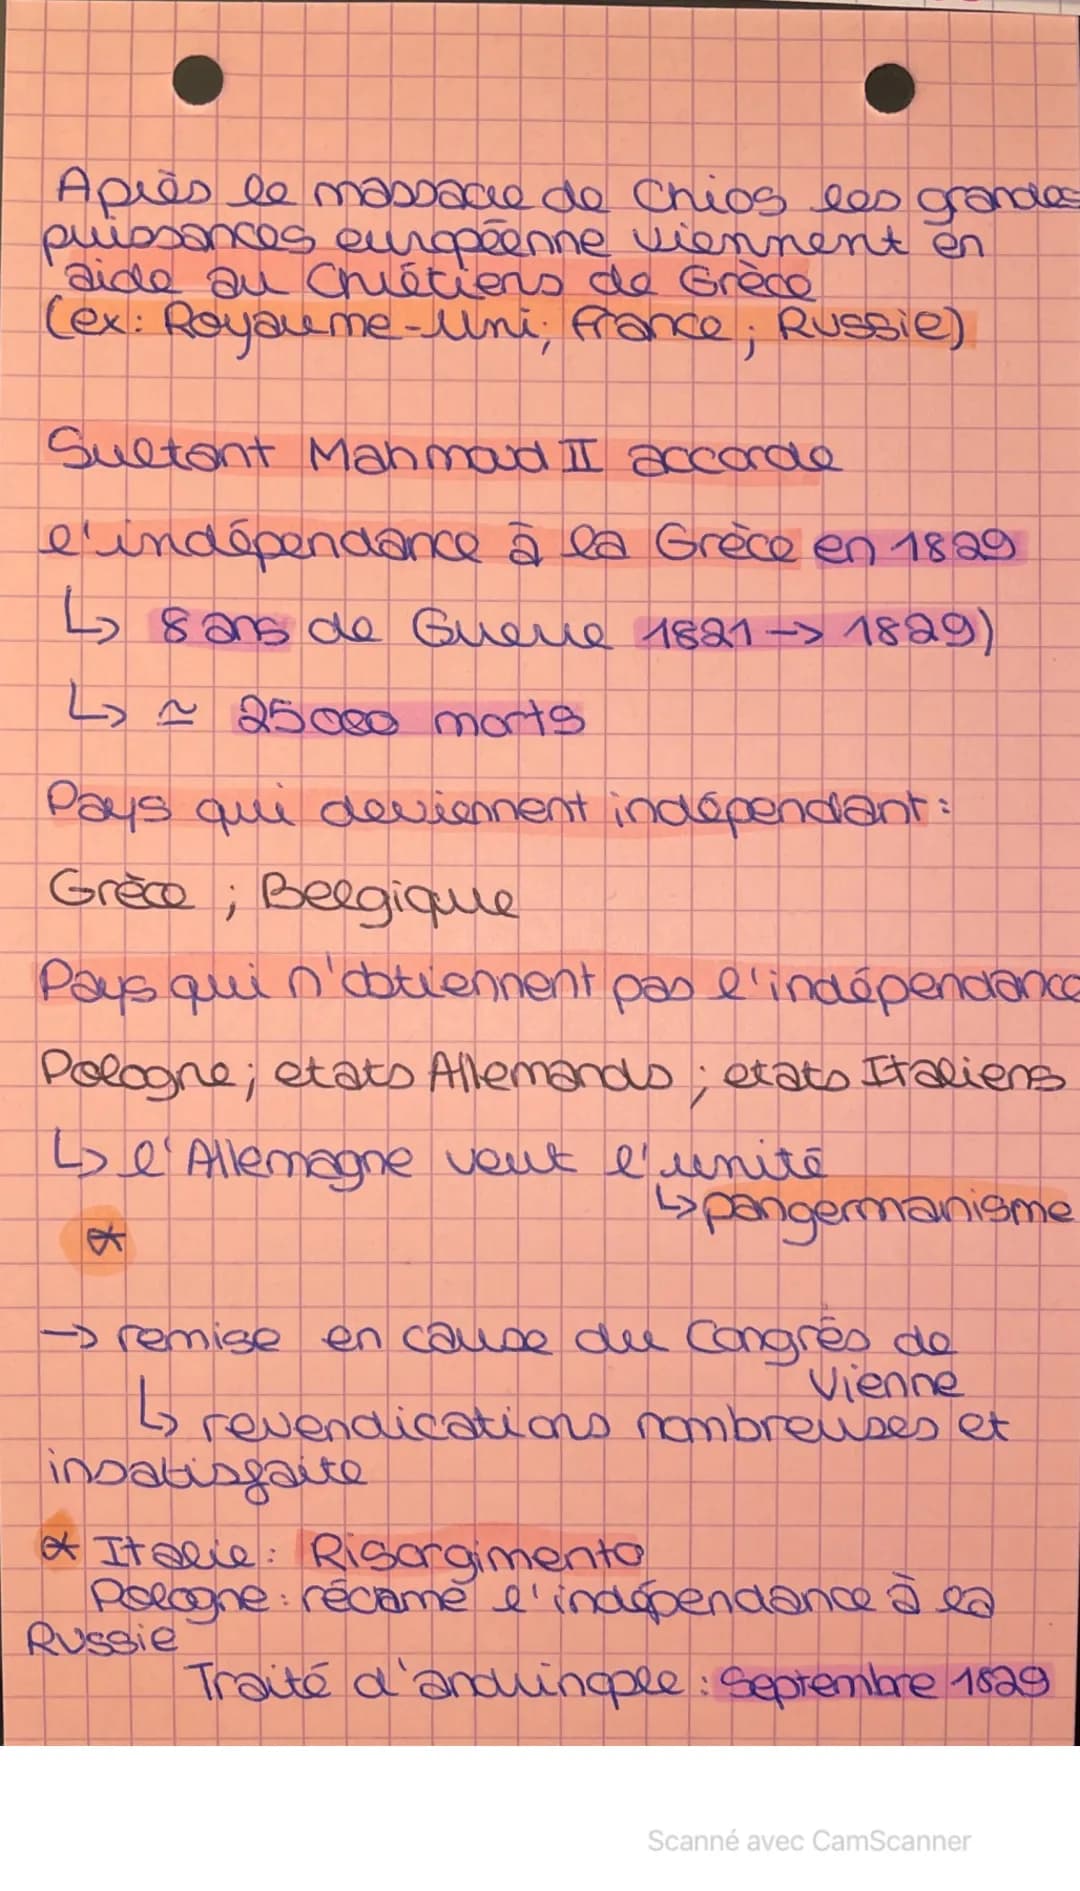 Après le massacre de Chios les grandes
puissances européenne viennent en
aide au Chrétiens de Grèce
(ex: Royaume-Uni; France; Russie)
Sultant Mahmoud II accorde
l'indépendance à la Grèce en 1829
↳ 8 ans de Guerre 1821 -> 1829)
↳ ≃ 25000 morts
Pays qui deviennent indépendant:
Grèce ; Belgique
Pays qui n'obtiennent pas l'indépendance
Pologne; etats Allemands ; etats Italiens
↳ l'Allemagne veut l'unité
↳ pangermanisme
*
→ remise en cause du Congrès de
Vienne
↳ revendications nombreuses et
insatisfaite
* Italie: Risorgimento
Pologne: récame l'indépendance à la
Russie
Traité d'andrinople: Septembre 1829
Scanné avec CamScanner